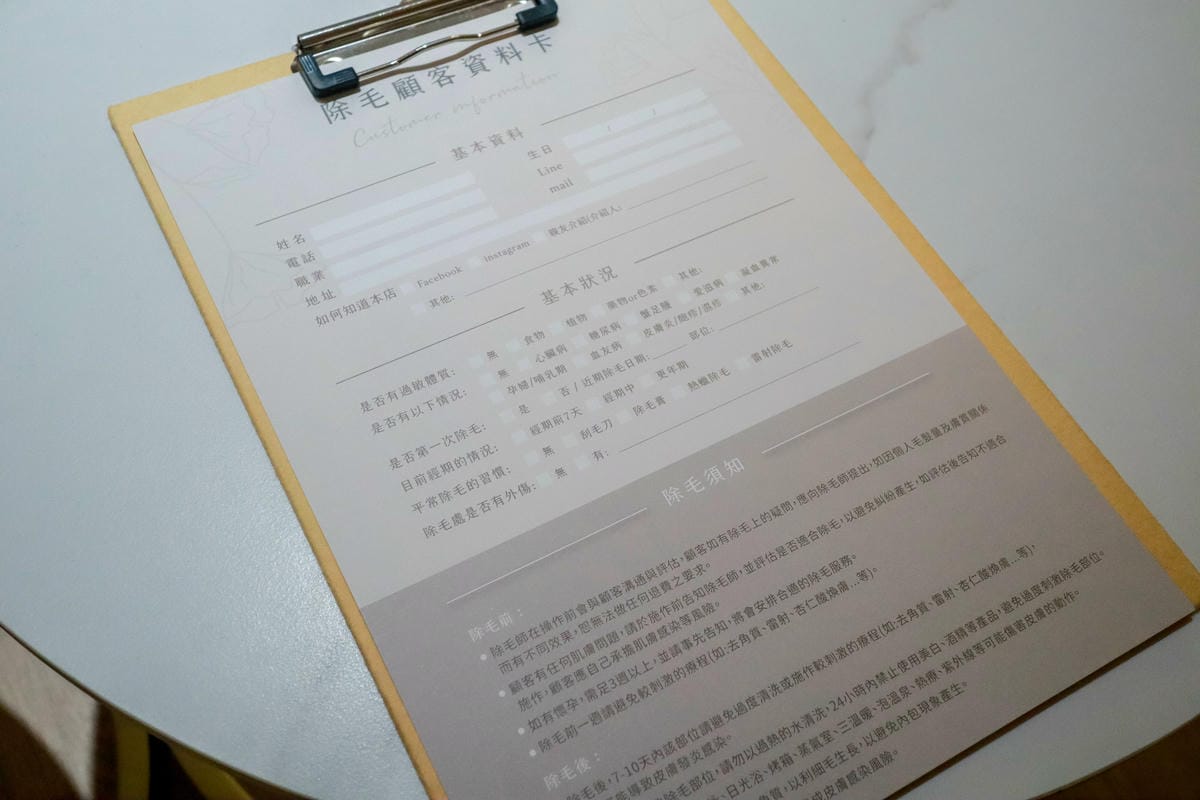 除毛顧客資料卡
Customer information
基本資料
姓名
生日 / /
電話
Line
職業
mail
地址
如何知道本店 Facebook instagram 親友介紹(介紹人:
其他:
基本狀況
是否有過敏體質: 無 食物 植物 藥物or色素 其他:
是否有以下情況: 無 心臟病 糖尿病 蟹足腫 愛滋病 凝血異常
孕婦/哺乳期 血友病 皮膚炎/皰疹/濕疹 其他:
是否第一次除毛: 是 否 / 近期除毛日期: 部位:
目前經期的情況: 經期前7天 經期中 更年期
平常除毛的習慣: 無 刮毛刀 除毛膏 熱蠟除毛 雷射除毛
除毛處是否有外傷: 無 有:
除毛須知
除毛前:
除毛師在操作前會與顧客溝通與評估,顧客如有除毛上的疑問,應向除毛師提出,如因個人毛髮量及膚質關係
而有不同效果,恕無法做任何退費之要求。
顧客有任何肌膚問題,請於施作前告知除毛師,並評估是否適合除毛,以避免糾紛產生,如評估後告知不適合
施作,顧客應自己承擔肌膚感染等風險。
如有懷孕,需足3週以上,並請事先告知,將會安排合適的除毛服務。
除毛前一週請避免較刺激的療程(如:去角質、雷射、杏仁酸煥膚...等)。
除毛後:
除毛後,7-10天內該部位請避免過度清洗或施作較刺激的療程(如:去角質、雷射、杏仁酸煥膚...等),
能導致皮膚發炎感染。
除毛部位,請勿以過熱的水清洗,24小時內禁止使用美白、酒精等產品,避免過度刺激除毛部位。
、日光浴、烤箱、蒸氣室、三溫暖、泡溫泉、熱療、紫外線等可能傷害皮膚的動作。
角質,以利細毛生長,以避免內包現象產生。
或皮膚感染風險。